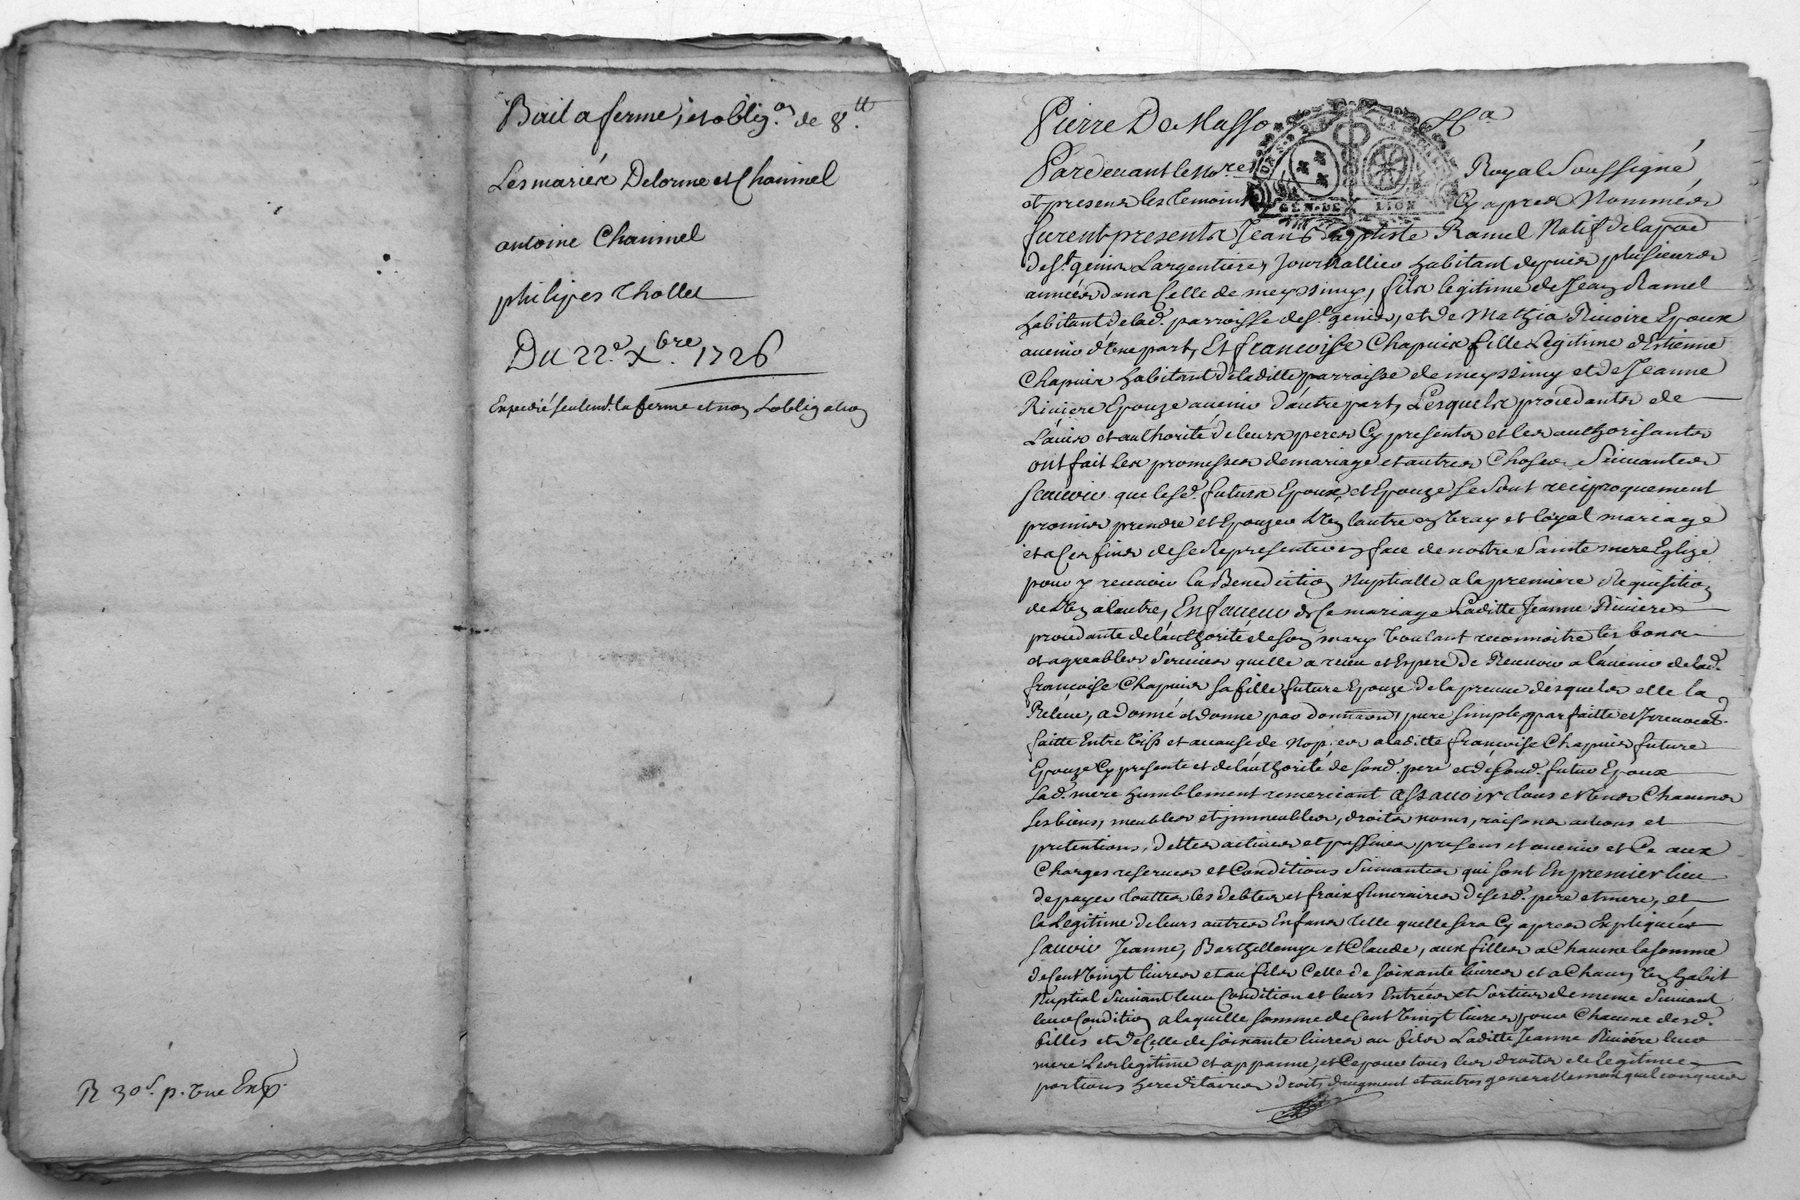 Bail a ferme, et oblig.on de 8.tt
Les mariés Delorme et Chaumel
antoine Chaumel
philipes thollet
Du 22.e Xbre. 1726
Expedié seulemt. la ferme et non Lobligation
R 30s. p. vne Exp.
Pierre De Masso
Pardevant le no.re Royal Soussigné
et presens les temoins Cy apres Nommés
furent presents Jean Baptiste Ramel Natif de la
de st. genis Largentiere, Journallier habitant depuis plusieurs
années dans Celle de meyssimy, fils legitime de Jean Ramel
habitant de lad. parroisse de st. genis, et de Rivoire Epoux
avenir d'Une part, Et francoise Chapuis fille Legitime d'Estienne
Chapuis habitant de laditte parroisse de meyssimy et de Jeanne
Riviere Epouze avenir d'autre part, Lesquels procedants de
L'avis et authorité de leurs peres Cy presents et les authorisants
ont fait les promesses de mariage et autres Choses Suivantes
scavoir que lesd. futurs Epoux et Epouze se sont reciproquement
promis prendre et Epouzer L'Un lautre en Vray et loyal mariage
et a Ces fins de se Representer en face de nostre Sainte mere Eglize
pour y recevoir la Benediction Nuptialle a la premiere Requisition
de lUn a lautre, En faveur de Ce mariage Laditte Jeanne Riviere
procedante de l'authorité de son mary Voulant reconnoitre les bons
et agreables Services quelle a receu et Espere de Recevoir a l'avenir de lad.
francoise Chapuis sa fille future Epouze de la preuve desquels elle la
Releve, a donné et donne par donnaon, pure simple, parfaitte et Irrevocab.
faitte Entre Vifs et a cause de Nopces a laditte francoise Chapuis future
Epouze Cy presente et de l'authorité de sond. pere et de sond. futur Epoux
sad. mere humblement remerciant assavoir tous et Uns Chacuns
ses biens, meubles et immeubles, droits noms, raisons actions et
pretentions, dettes actives et passives presens et avenir et Ce aux
Charges reserves et Conditions Suivantes qui sont En premier lieu
de payer touttes les debtes et fraix funeraires de sesd. pere et mere, et
la Legitime de leurs autres Enfans telle quelle sera Cy apres Expliquée
Savoir Jeanne, Barthellemye et Claude, aux filles a Chacune la somme
de Cent Vingt livres et au fils Celle de soixante livres et a Chacun Un habit
Nuptial Suivant leur Condition et leurs Entrées et Sorties de meme Suivant
leur Condition a laquelle somme de Cent Vingt livres pour Chacune desd.
filles et de Celle de soixante livres au fils Laditte Jeanne Riviere leur
mere Les legitime et appanne, et Ce pour tous les droits de legitime
portions hereditaires droits daugment et autres generallement quelconques